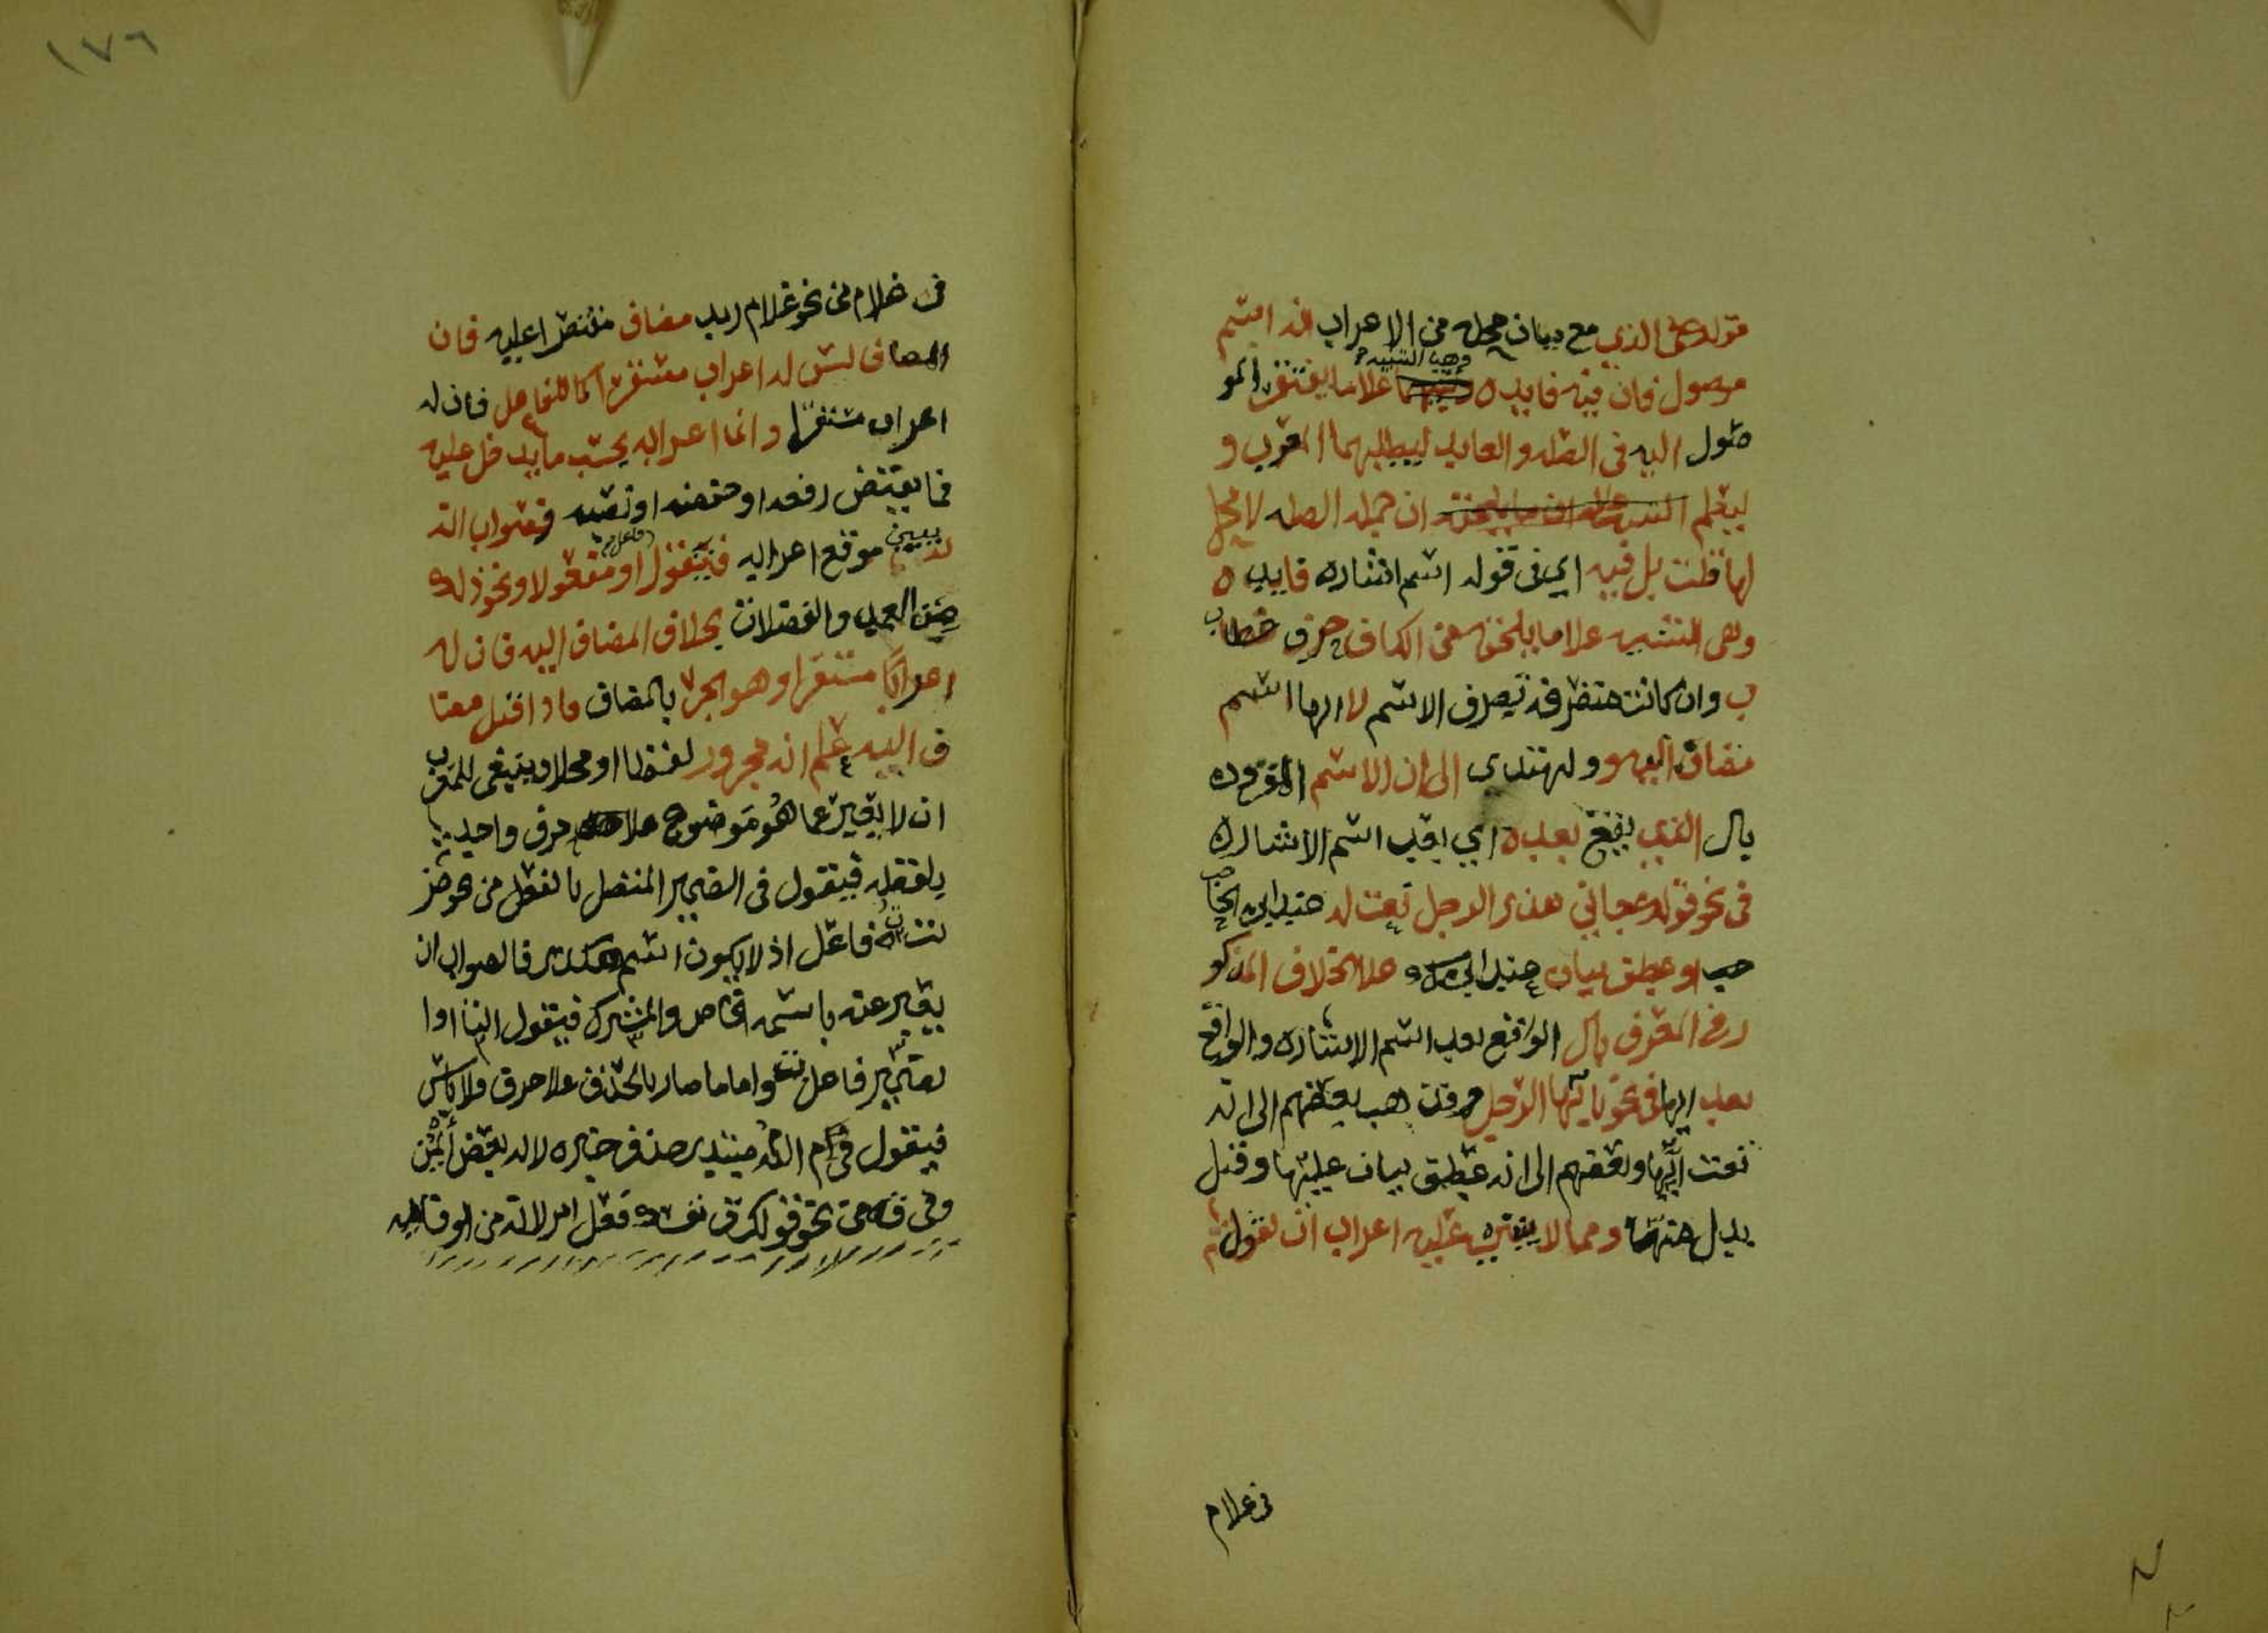 قوله على الذي مع بيان محله من الاعراب انه اسم
موصول فان فيه فايده وهي التنبيه علاما يفتقر المو
صول اليه في الصله والعايد ليطلبهما المعرب و
ليعلم ان جمله الصله لا محل
لها قلت بل فيه اي في قوله اسم اشاره فايده
وهي التنبيه علاما يلحقه من الكاف حرف خطاب
ب وان كانت متصرفه تصرف الاسم لا انها اسم
مضاف اليه وولهتدي الى ان الاسم المقرون
بال الذي يقع بعده اي بعد اسم الاشاره
في نحو قولك جاني هذا الرجل نعت له عند ابن الحا
جب او عطف بيان عند ابن مالك علا الخلاف المذكو
ر في المعرف بال الواقع بعد اسم الاشاره والواقع
بعد ايها في نحو يا ايها الرجل وقد ذهب بعضهم الى انه
نعت ايها وبعضهم الى انه عطف بيان عليها وقيل
بدل منها ومما لا يبنى عليه اعراب ان تقول
في غلام
١٧٦
في غلام من نحو غلام زيد مضاف مقتصرا عليه فان
المضاف ليس له اعراب مستقر كما للفاعل فان له
اعراب مستقرا وانما اعرابه بحسب ما يدخل عليه
فما يقتضي رفعه او خفضه او نصبه فصواب ان
تبين موقع اعرابه فيقول فاعل او مفعولا ونحو ذلك
من العمد والفضلات بخلاف المضاف اليه فان له
اعرابا مستقرا وهو الجر بالمضاف فاذا قيل مضا
ف اليه علم انه مجرور لفظا او محلا وينبغي للمعرب
ان لا يعبر عما هو موضوع علا حرف واحد
بلفظه فيقول في الضمير المتصل بالفعل من نحو ضر
بت ت فاعل اذ لا يكون اسم هكذا فالصواب ان
يعبر عنه باسمه الخاص والمشترك فيقول التا او ا
لضمير فاعل واما ما صار بالحذف علا حرف فلا باس
فيقول في م الله مبتدى حذف خبره لانه بعض ايمن
وفي ق من نحو قولك ق نفسك فعل امر لانه من الوقايه